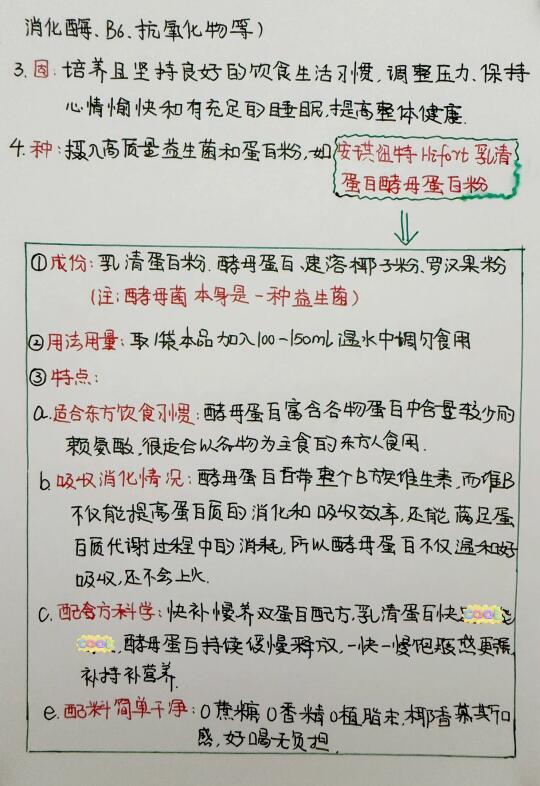 消化酶、B6、抗氧化物等)
3.固:培养且坚持良好的饮食生活习惯,调整压力、保持
心情愉快和有充足的睡眠,提高整体健康.
4.种:摄入高质量益生菌和蛋白粉,如
安琪纽特Hifort乳清
蛋白酵母蛋白粉
①成份:乳清蛋白粉、酵母蛋白、速溶椰子粉、罗汉果粉
(注:酵母菌本身是一种益生菌)
②用法用量:取1袋本品加入100-150ml温水中调匀食用
③特点:
a.适合东方饮食习惯:酵母蛋白富含谷物蛋白中含量较少的
赖氨酸,很适合以谷物为主食的东方人食用.
b.吸收消化情况:酵母蛋白自带整个B族维生素,而维B
不仅能提高蛋白质的消化和吸收效率,还能满足蛋
白质代谢过程中的消耗,所以酵母蛋白不仅温和好
吸收,还不会上火.
c.配方科学:快补慢养双蛋白配方,乳清蛋白快
,酵母蛋白持续缓慢释放,一快一慢饱腹感更强,
补持补营养.
e.配料简单干净:0蔗糖0香精0植脂末,椰香慕斯口
感,好喝无负担.